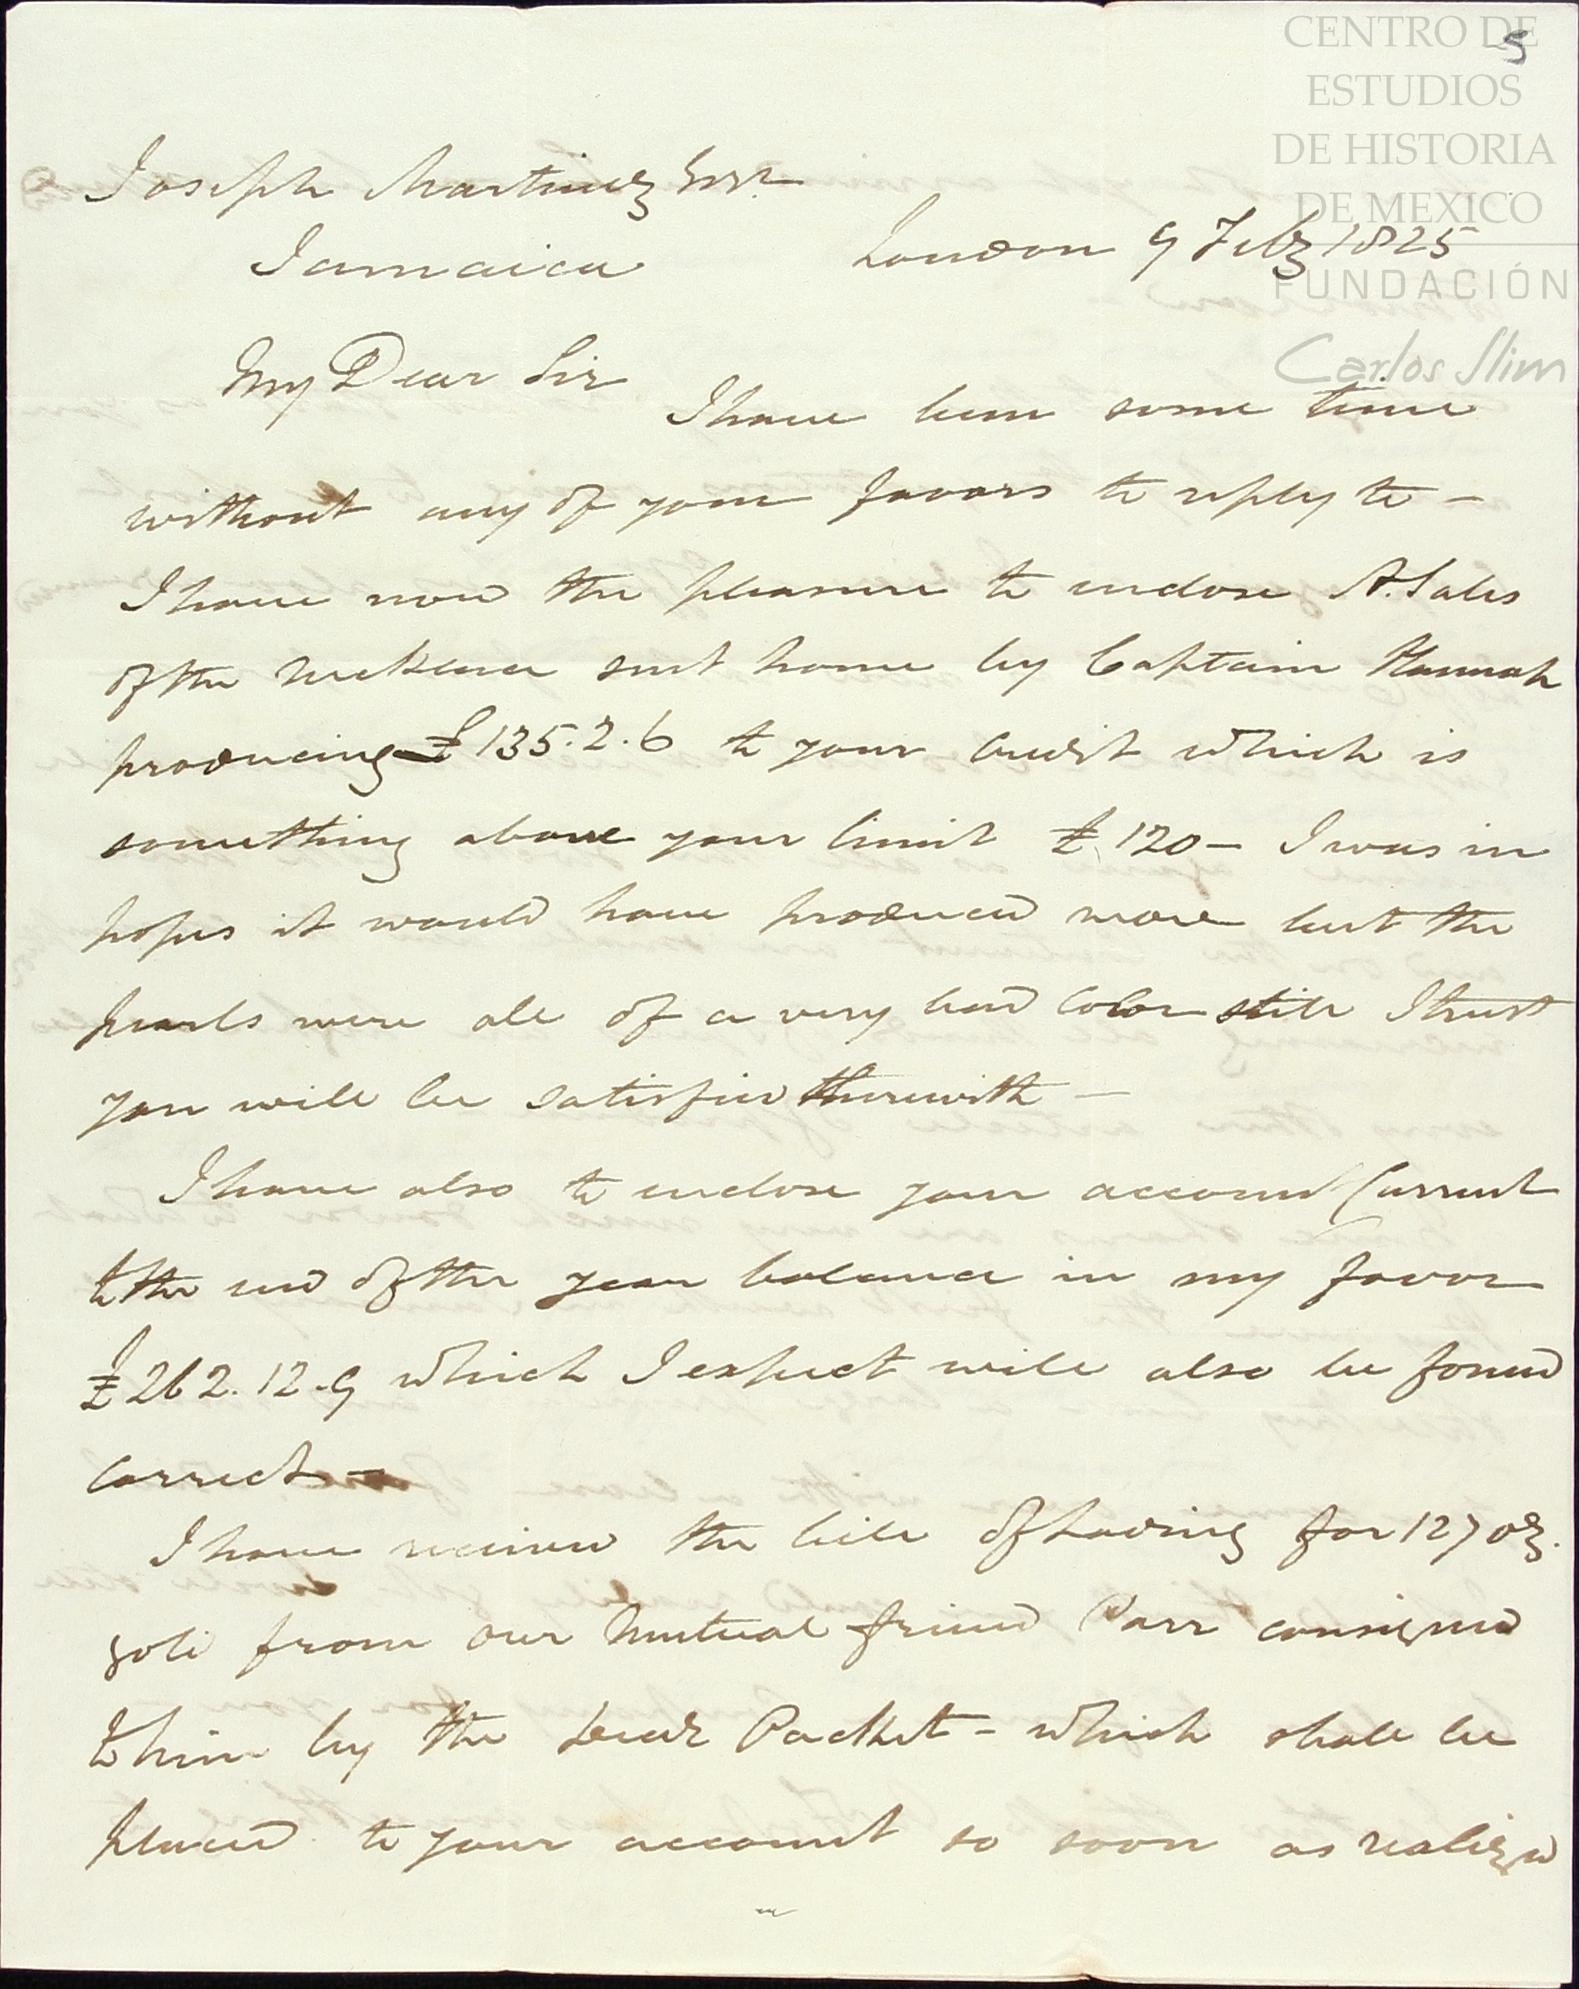 5
CENTRO DE
ESTUDIOS
DE HISTORIA
DE MEXICO
FUNDACIÓN
Carlos Slim
Joseph Martinez Esqr.
Jamaica
London 9 Feby 1825
My Dear Sir
I have been some time
without any of your favors to reply to –
I have now the pleasure to enclose A. Sales
of the Necklace sent home by Captain Hannah
producing £135.2.6 to your credit which is
something above your limit £120 – I was in
hopes it would have produced more but the
pearls were all of a very bad Color still I trust
you will be satisfied therewith –
I have also to enclose your account Current
to the end of the year balance in my favor
£262.12.9 which I expect will also be found
correct –
I have received the bill of Lading for 127 oz.
gold from our Mutual friend Parr consigned
to him by the Packet – which shall be
placed to your account so soon as realized